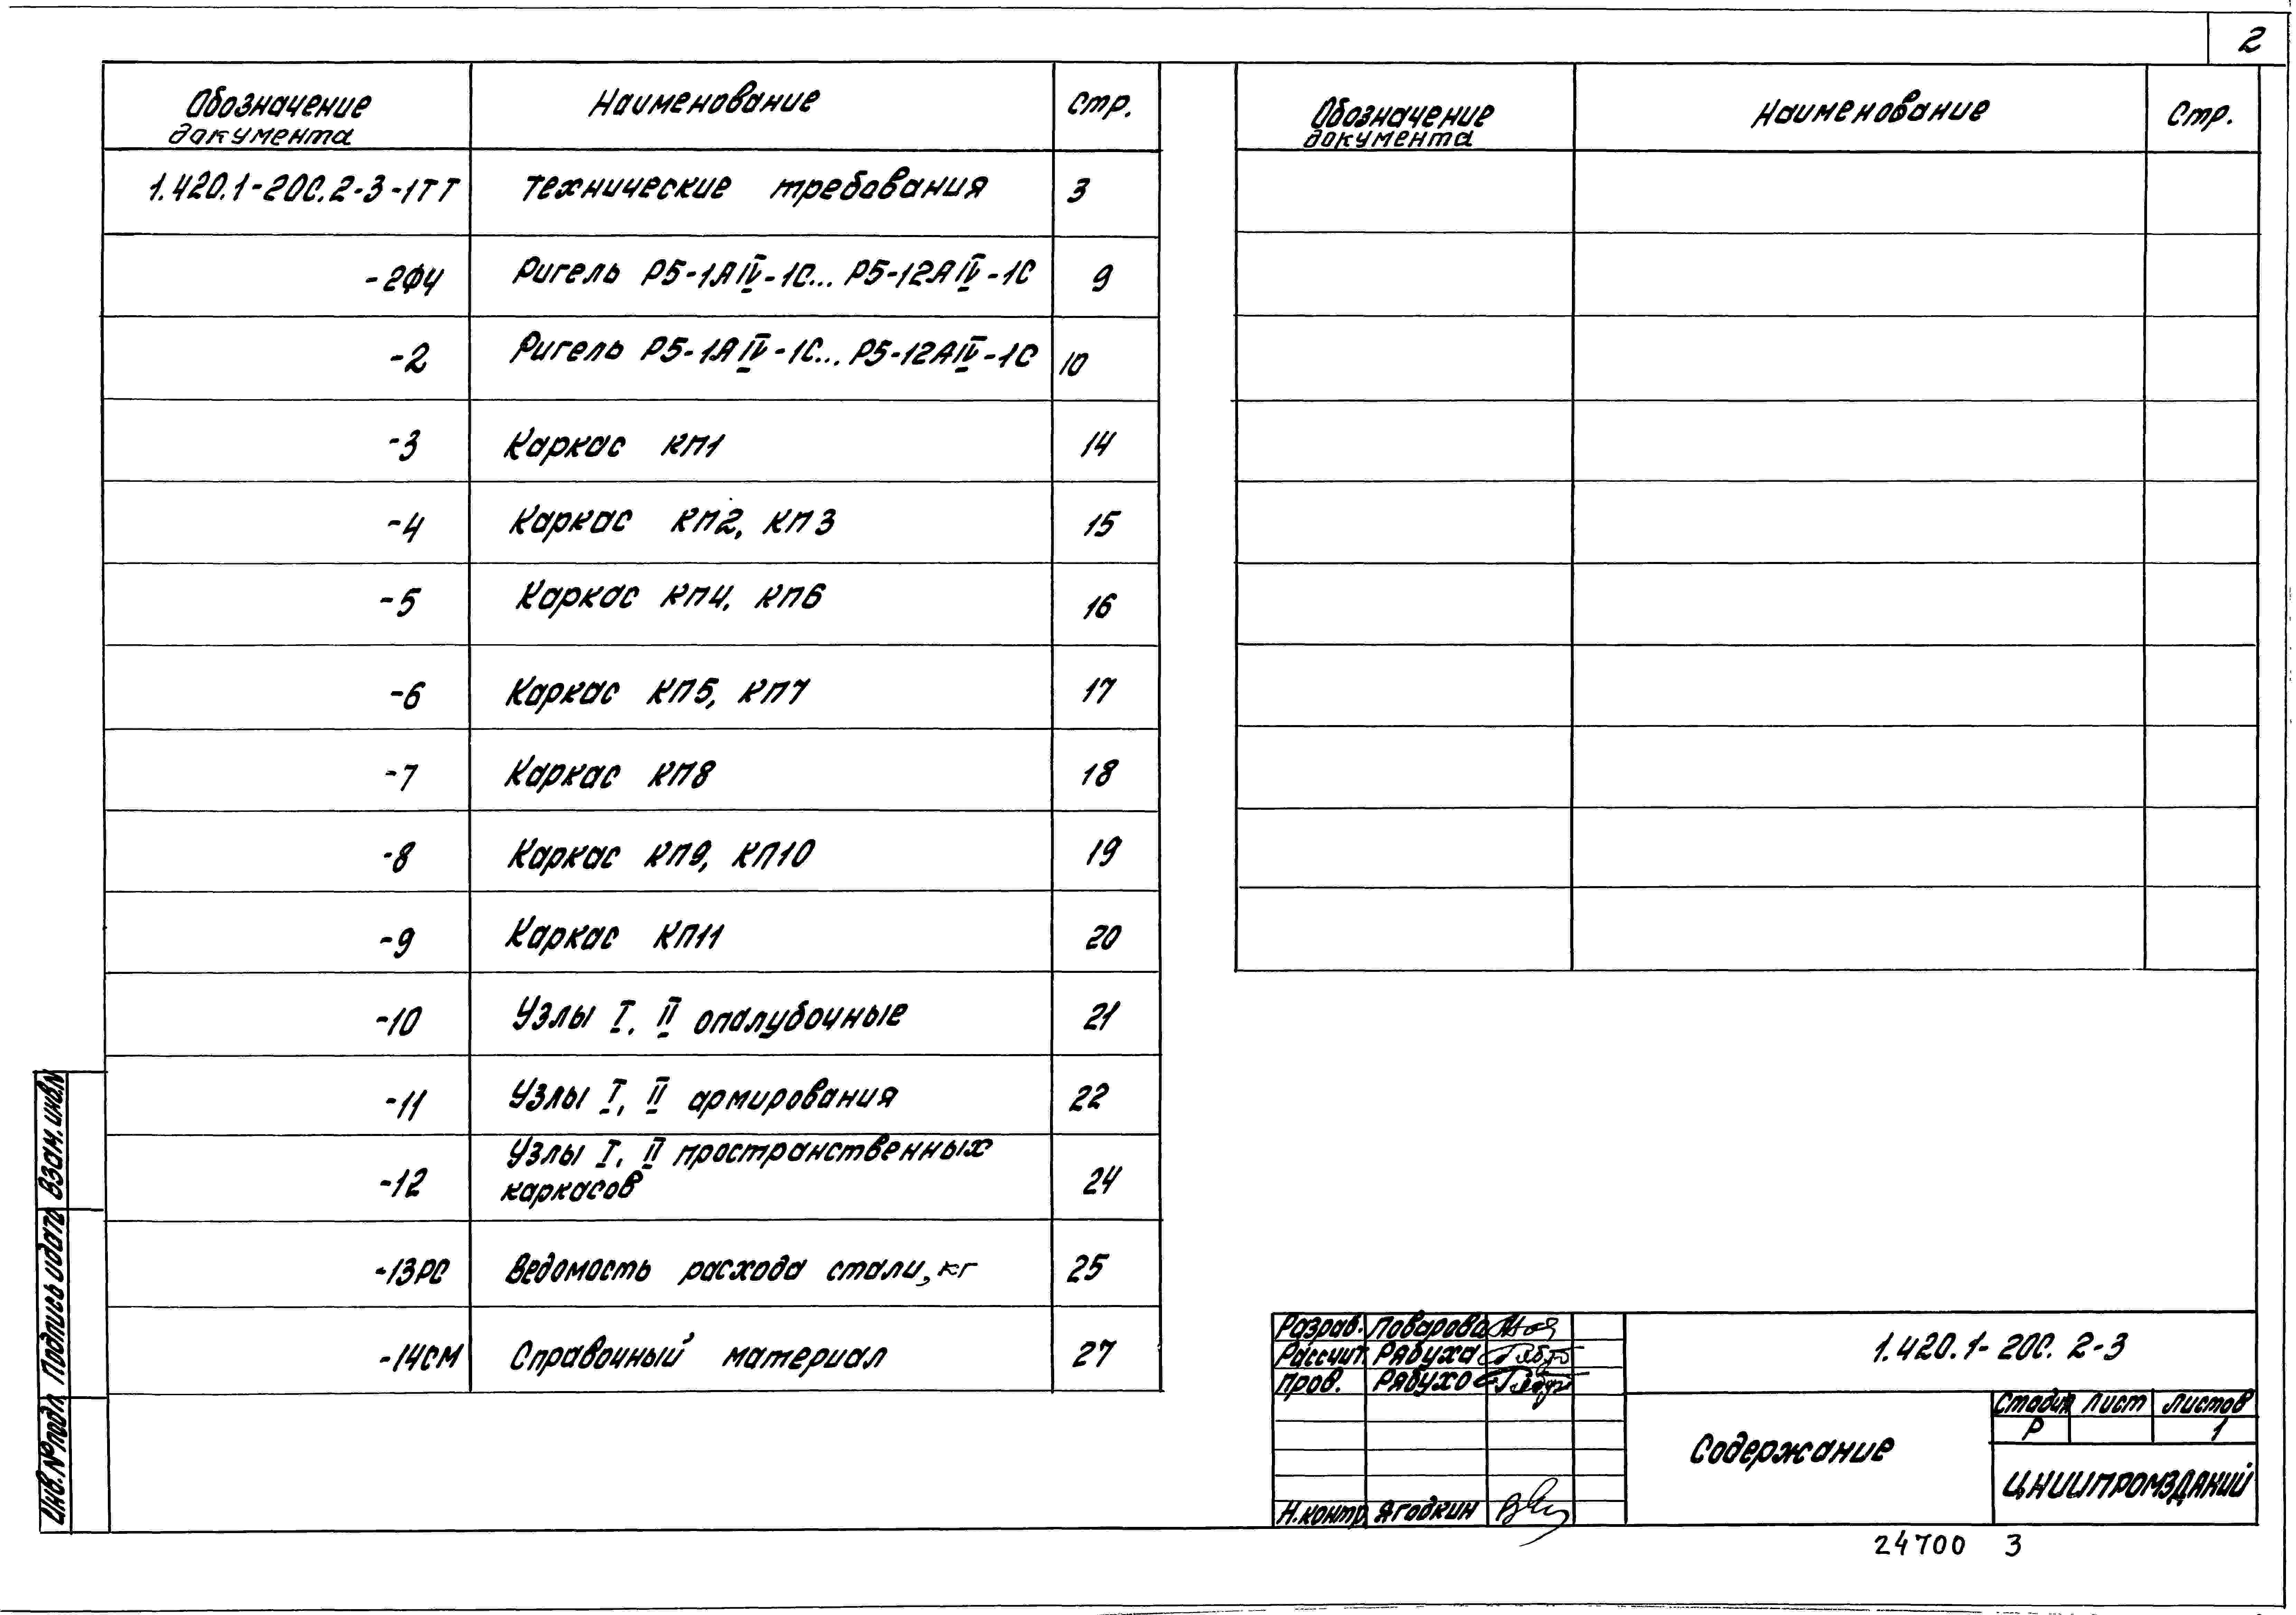 2
Обозначение документа Наименование Стр.
1.420.1-20С.2-3-1ТТ Технические требования 3
-2ФЧ Ригель Р5-1АIV-1С... Р5-12АIV-1С 9
-2 Ригель Р5-1АIV-1С... Р5-12АIV-1С 10
-3 Каркас КП1 14
-4 Каркас КП2, КП3 15
-5 Каркас КП4, КП6 16
-6 Каркас КП5, КП7 17
-7 Каркас КП8 18
-8 Каркас КП9, КП10 19
-9 Каркас КП11 20
-10 Узлы I, II опалубочные 21
-11 Узлы I, II армирования 22
-12 Узлы I, II пространственных
каркасов 24
-13РС Ведомость расхода стали, кг 25
-14СМ Справочный материал 27
Обозначение документа Наименование Стр.
Взам. инв.N
Подпись и дата
Инв. № подл.
Разраб. Поварова
Рассчит. Рябуха
Пров. Рябуха
Н.контр. Ягодкин
1.420.1-20С. 2-3
Содержание
Стадия Лист Листов
Р 1
ЦНИИПРОМЗДАНИЙ
24700 3